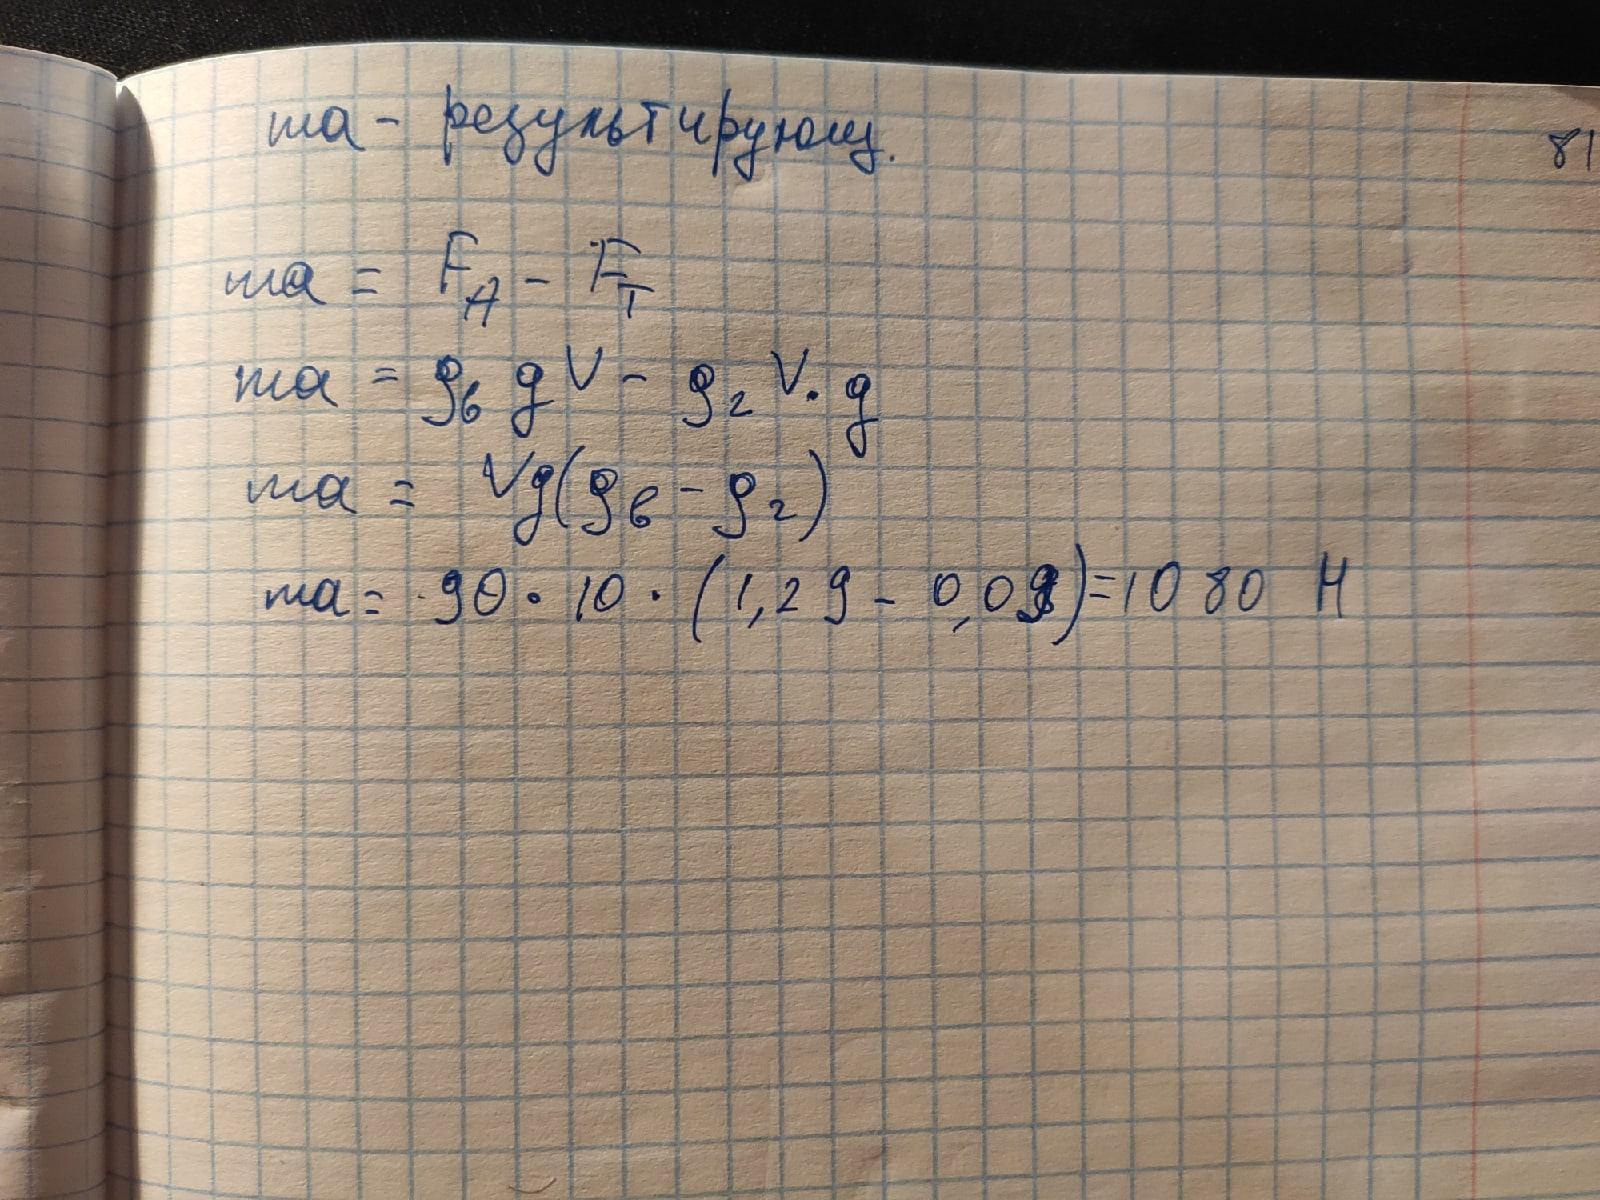 ma - результирующ.
81
ma = F_A - F_T
ma = ρ_в g V - ρ_г V · g
ma = Vg(ρ_в - ρ_г)
ma = 90 · 10 · (1,29 - 0,09) = 1080 Н